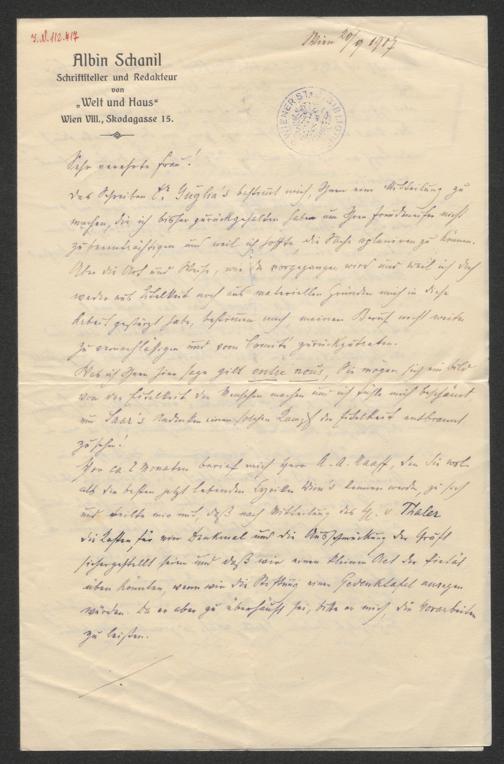 J.N. 112.417
Wien 20/9 1907
Albin Schanil
Schriftsteller und Redakteur
von
„Welt und Haus“
Wien VIII., Skodagasse 15.
WIENER STADTBIBLIOTHEK
Sehr verehrte Frau!
Das Schreiben Dr Guglia's bestimmt mich, Ihnen eine Mitteilung zu
machen, die ich bisher zurückgehalten habe um Ihren
zu beeinträchtigen und weil ich hoffte, die Sache zu können.
Aber die Art und Weise, wie da vorgegangen wird und weil ich doch
weder aus Eitelkeit noch aus materiellen Gründen mich in diese
Arbeit gestürzt habe, bestimmen mich meinen Beruf nicht weiter
zu vernachlässigen und vom Comité zurückzutreten.
Was ich Ihnen hier sage gilt entre nous, Sie mögen sich ein Bild
von der Eitelkeit der Menschen machen und ich fühle mich beschämt
um Saar's Andenken einen solchen Kampf der Eitelkeit entbrannt
zu sehen!
Vor ca 2 Monaten berief mich Herr K. A. Kaaff, den Sie wol
als den besten jetzt lebenden Lyriker Wien's kennen werden, zu sich
und teilte mir mit, daß nach Mitteilung des H. v Thaler
die Kosten für ein Denkmal und die Ausschmückung der Gruft
sichergestellt seien und daß wir einen kleinen Act der Pietät
üben könnten, wenn wir die Stiftung einer Gedenktafel anregen
würden. Da er aber zu überhäuft sei, bitte er mich, die Vorarbeiten
zu leisten.